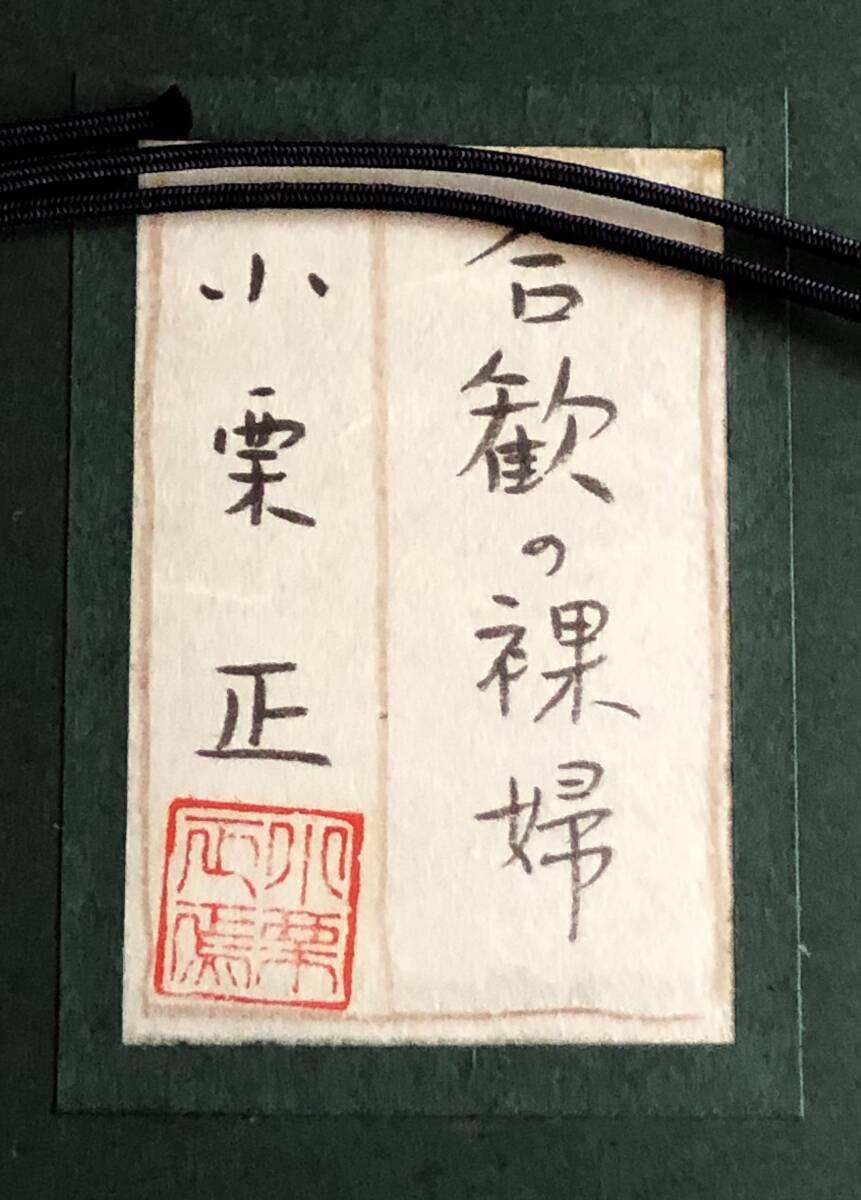 合歓の裸婦
小栗正
小栗
正